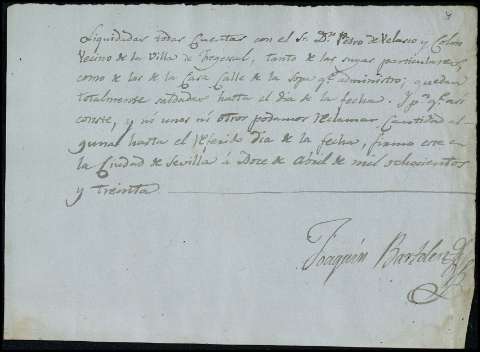 Liquidadas todas Cuentas con el Sr. Dn. Pedro de Velasco y Colon
Vecino de la Villa de Fregenal, tanto de las suyas particulares,
como de las de la Casa Calle de la Sopa qe. administro; quedan
totalmente saldadas hasta el dia de la fecha. Y pa. qe. asi
conste, y ni unos ni otros podamos reclamar Cantidad al-
guna hasta el referido dia de la fecha, firmo este en
la Ciudad de Sevilla á Doce de Abril de mil ochocientos
y treinta
Joaquin